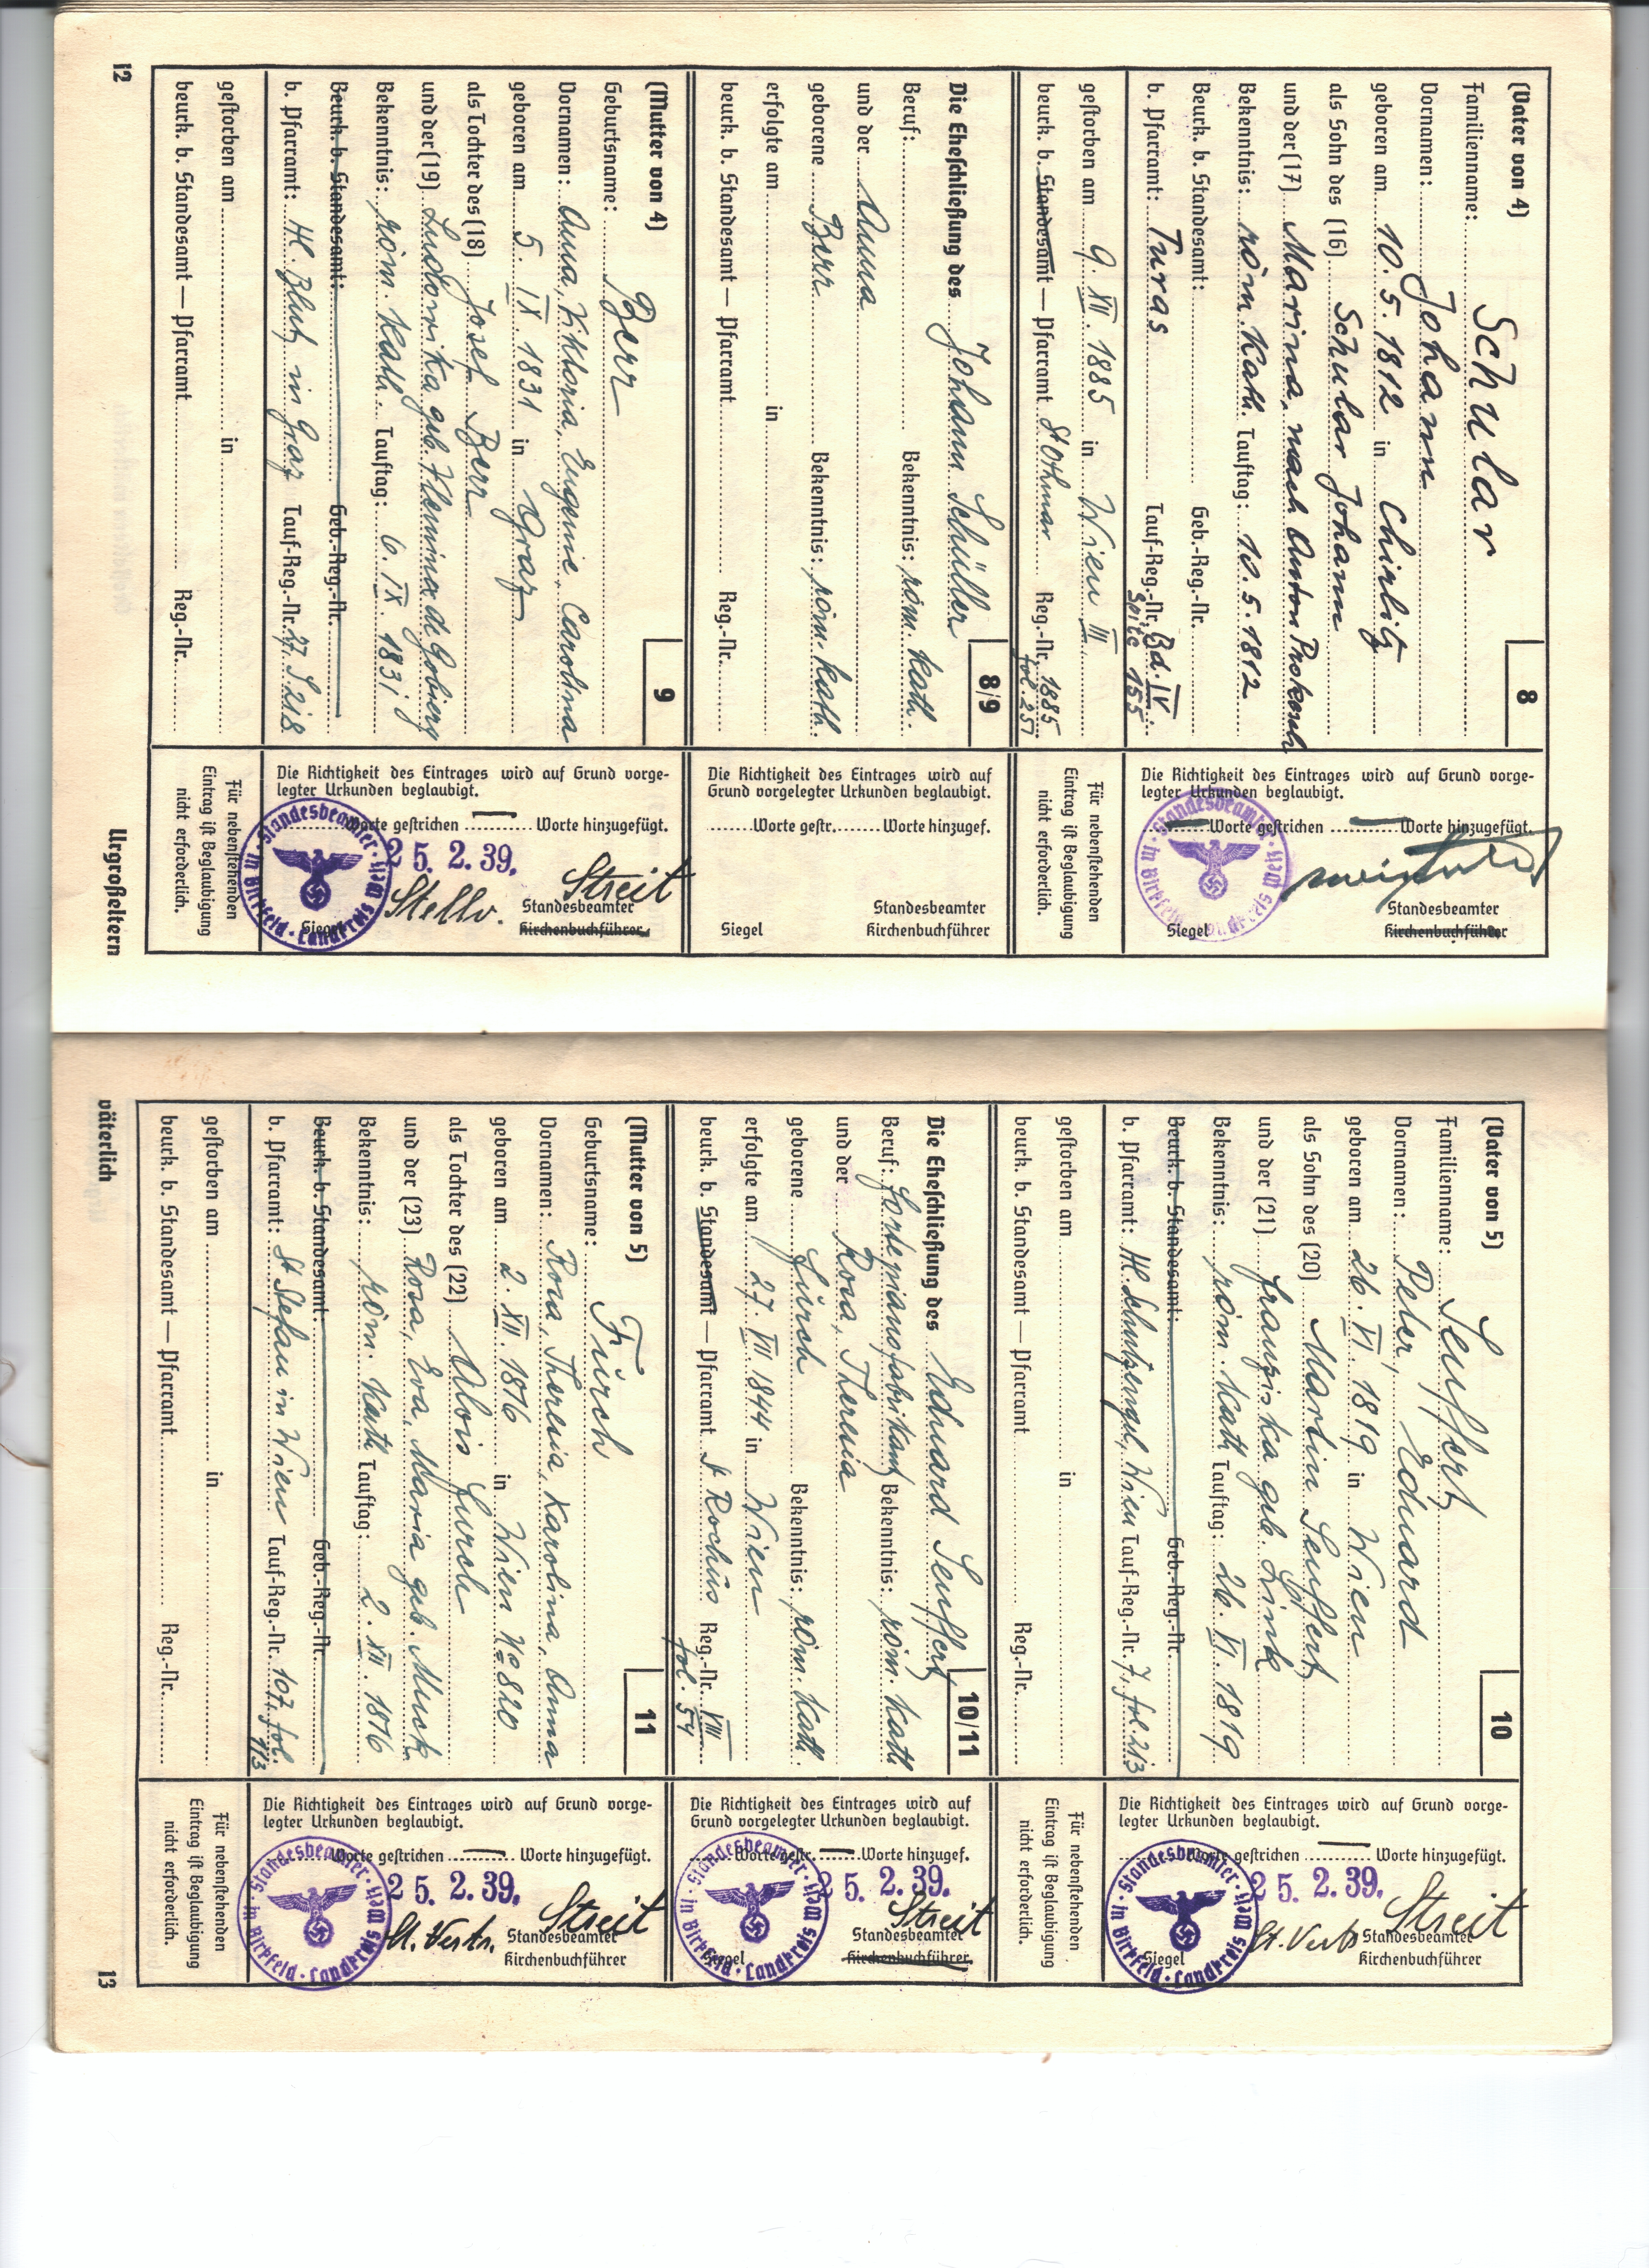 (Vater von 4)
8
Familienname: Schular
Vornamen: Johann
geboren am 10.5.1812 in Chirlitz
als Sohn des (16) Schular Johann
und der (17) Marina, nach Anton Prokosch
Bekenntnis: röm. Kath. Tauftag: 10.5.1812
Beurk. b. Standesamt: Geb.-Reg.-Nr.
b. Pfarramt: Turas Tauf-Reg.-Nr. Bd. IV.
Seite 155
gestorben am 9. XII. 1885 in Wien III
beurk. b. Standesamt — Pfarramt St Othmar Reg.-Nr. 1885
fol. 251
Die Richtigkeit des Eintrages wird auf Grund vorge-
legter Urkunden beglaubigt.
Worte gestrichen Worte hinzugefügt.
Standesbeamter
Siegel Kirchenbuchführer
Standesbeamter in Birkfeld · Landkreis Weiz
Für nebenstehenden
Eintrag ist Beglaubigung
nicht erforderlich.
8/9
Die Eheschließung des Johann Schüller
Beruf: Bekenntnis: röm. Kath.
und der Anna
geborene Berr Bekenntnis: röm. Kath.
erfolgte am in
beurk. b. Standesamt — Pfarramt Reg.-Nr.
Die Richtigkeit des Eintrages wird auf
Grund vorgelegter Urkunden beglaubigt.
Worte gestr. Worte hinzugef.
Standesbeamter
Siegel Kirchenbuchführer
(Mutter von 4)
9
Geburtsname: Berr
Vornamen: Anna, Viktoria, Eugenie, Carolina
geboren am 5. IX. 1831 in Graz
als Tochter des (18) Josef Berr
und der (19) Ludovika geb.
Bekenntnis: röm. Kath. Tauftag: 6. IX. 1831
Beurk. b. Standesamt: Geb.-Reg.-Nr.
b. Pfarramt: Hl. Blut in Graz Tauf-Reg.-Nr. 27 S 218
gestorben am in
beurk. b. Standesamt — Pfarramt Reg.-Nr.
Die Richtigkeit des Eintrages wird auf Grund vorge-
legter Urkunden beglaubigt.
Worte gestrichen Worte hinzugefügt.
25. 2. 39.
Streit
Stellv. Standesbeamter
Siegel Kirchenbuchführer
Standesbeamter in Birkfeld · Landkreis Weiz
Für nebenstehenden
Eintrag ist Beglaubigung
nicht erforderlich.
12 Urgroßeltern
(Vater von 5)
10
Familienname: Seuffert
Vornamen: Peter, Eduard
geboren am 26. VI. 1819 in Wien
als Sohn des (20) Martin Seuffert
und der (21) Franziska geb. Link
Bekenntnis: röm. Kath Tauftag: 26. VI. 1819
Beurk. b. Standesamt: Geb.-Reg.-Nr.
b. Pfarramt: Hl. Schutzengel, Wien Tauf-Reg.-Nr. 7, fol. 213
gestorben am in
beurk. b. Standesamt — Pfarramt Reg.-Nr.
Die Richtigkeit des Eintrages wird auf Grund vorge-
legter Urkunden beglaubigt.
Worte gestrichen Worte hinzugefügt.
25. 2. 39.
Streit
St. Vertr. Standesbeamter
Siegel Kirchenbuchführer
Standesbeamter in Birkfeld · Landkreis Weiz
Für nebenstehenden
Eintrag ist Beglaubigung
nicht erforderlich.
10/11
Die Eheschließung des Eduard Seuffert
Beruf: Fortepianofabrikant Bekenntnis: röm. Kath
und der Rosa, Theresia
geborene Fürch Bekenntnis: röm. Kath.
erfolgte am 27. VII 1844 in Wien
beurk. b. Standesamt — Pfarramt St Rochus Reg.-Nr. VIII
fol. 54
Die Richtigkeit des Eintrages wird auf
Grund vorgelegter Urkunden beglaubigt.
Worte gestr. Worte hinzugef.
25. 2. 39.
Streit
Standesbeamter
Siegel Kirchenbuchführer
Standesbeamter in Birkfeld · Landkreis Weiz
(Mutter von 5)
11
Geburtsname: Fürch
Vornamen: Rosa, Theresia, Karolina, Anna
geboren am 2. XII. 1816 in Wien No 820
als Tochter des (22) Alois Furch
und der (23) Rosa, Eva, Maria geb. Muck
Bekenntnis: röm. Kath Tauftag: 2. XII. 1816
Beurk. b. Standesamt: Geb.-Reg.-Nr.
b. Pfarramt: St Stefan in Wien Tauf-Reg.-Nr. 107, fol.
gestorben am in
beurk. b. Standesamt — Pfarramt Reg.-Nr.
Die Richtigkeit des Eintrages wird auf Grund vorge-
legter Urkunden beglaubigt.
Worte gestrichen Worte hinzugefügt.
25. 2. 39.
Streit
St. Vertr. Standesbeamter
Kirchenbuchführer
Standesbeamter in Birkfeld · Landkreis Weiz
Für nebenstehenden
Eintrag ist Beglaubigung
nicht erforderlich.
väterlich 13